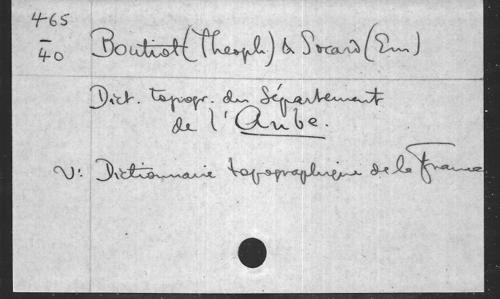 465
40
Boutiot (Theoph.) & Socard (Em)
Dict. topogr. du Département
de l'Aube.
V: Dictionnaire topographique de la France